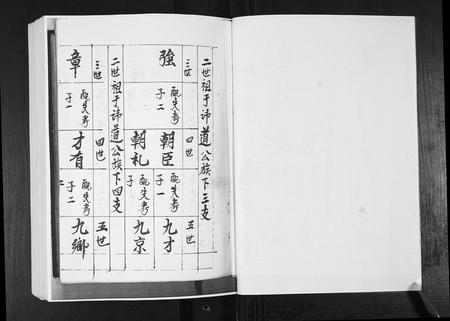 二世祖于讳道公族下三支
三世
四世
五世
強
配失考
子二
朝臣
配失考
子一
九才
朝礼
配失考
子
九京
二世祖于讳道公族下四支
三世
四世
五世
章
配失考
子二
才有
配失考
子二
九鄉